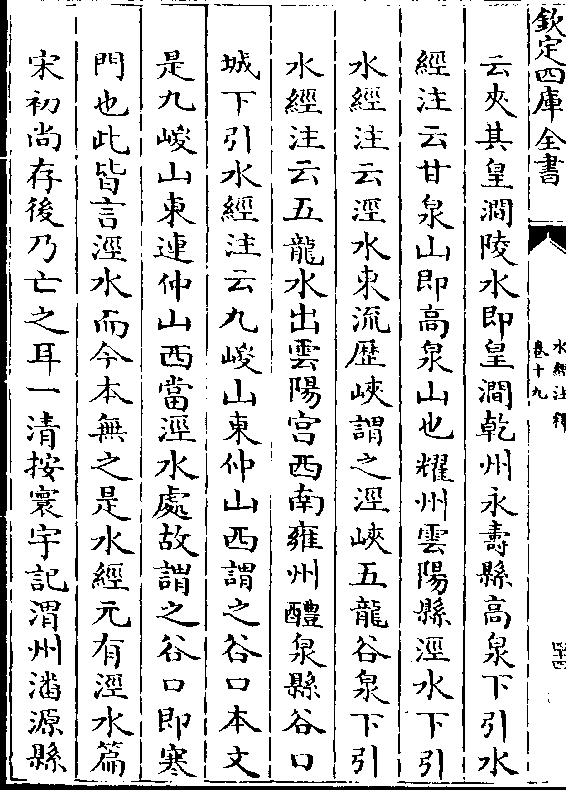 欽定四庫全書
水經注釋
卷十九
云夾其皇澗陵水即皇澗乾州永壽縣高泉下引水
經注云甘泉山即高泉山也耀州雲陽縣涇水下引
水經注云涇水東流歷峽謂之涇峽五龍谷泉下引
水經注云五龍水出雲陽宫西南雍州醴泉縣谷口
城下引水經注云九嵕山東仲山西謂之谷口本文
是九嵕山東連仲山西當涇水處故謂之谷口即寒
門也此皆言涇水而今本無之是水經元有涇水篇
宋初尚存後乃亡之耳一清按寰宇記渭州潘源縣